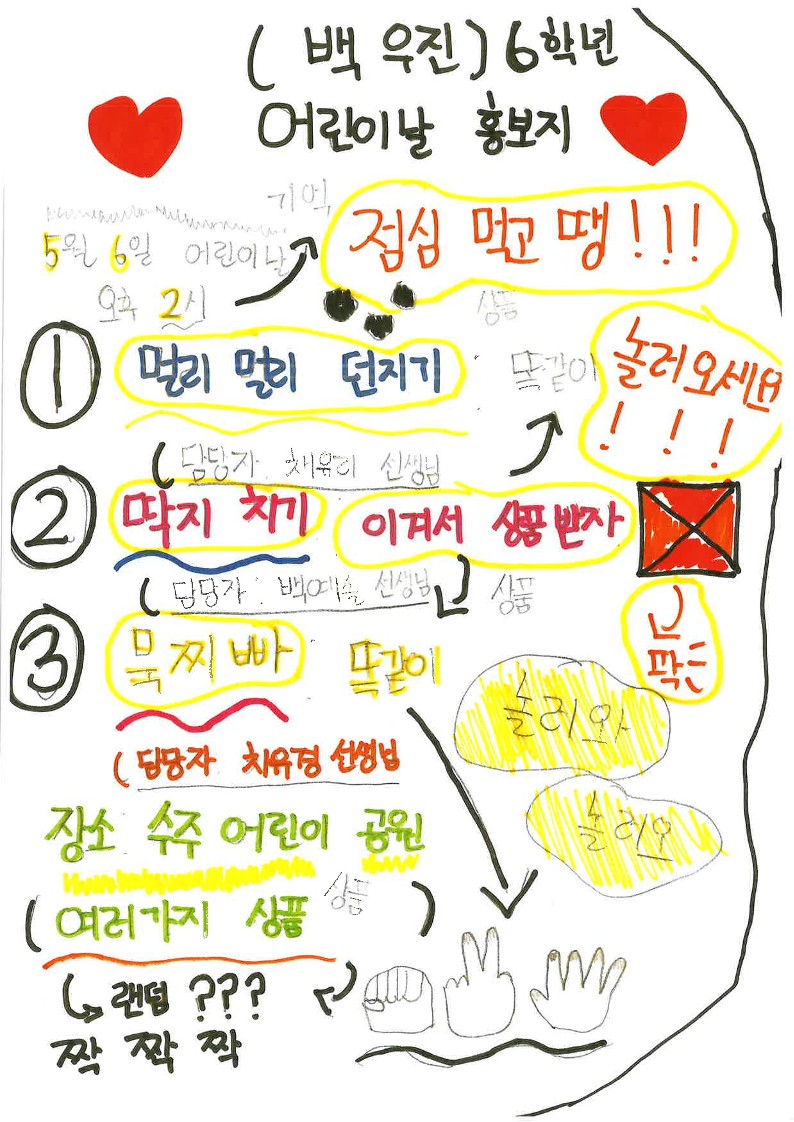 ( 백 우진 ) 6학년
어린이날 홍보지
기억
점심 먹고 땡!!!
5월 6일 어린이날
오후 2시
상품
① 멀리 멀리 던지기
똑같이
놀러오세요
!!!
( 담당자 채유리 선생님
② 딱지 치기
이겨서 상품받자
( 담당자 : 백예슬 선생님
상품
③ 묵찌빠
똑같이
딱
놀러와
( 담당자 치유경 선생님
놀러오
장소 수주 어린이 공원
상품
( 여러가지 상품 )
랜덤 ???
짝 짝 짝